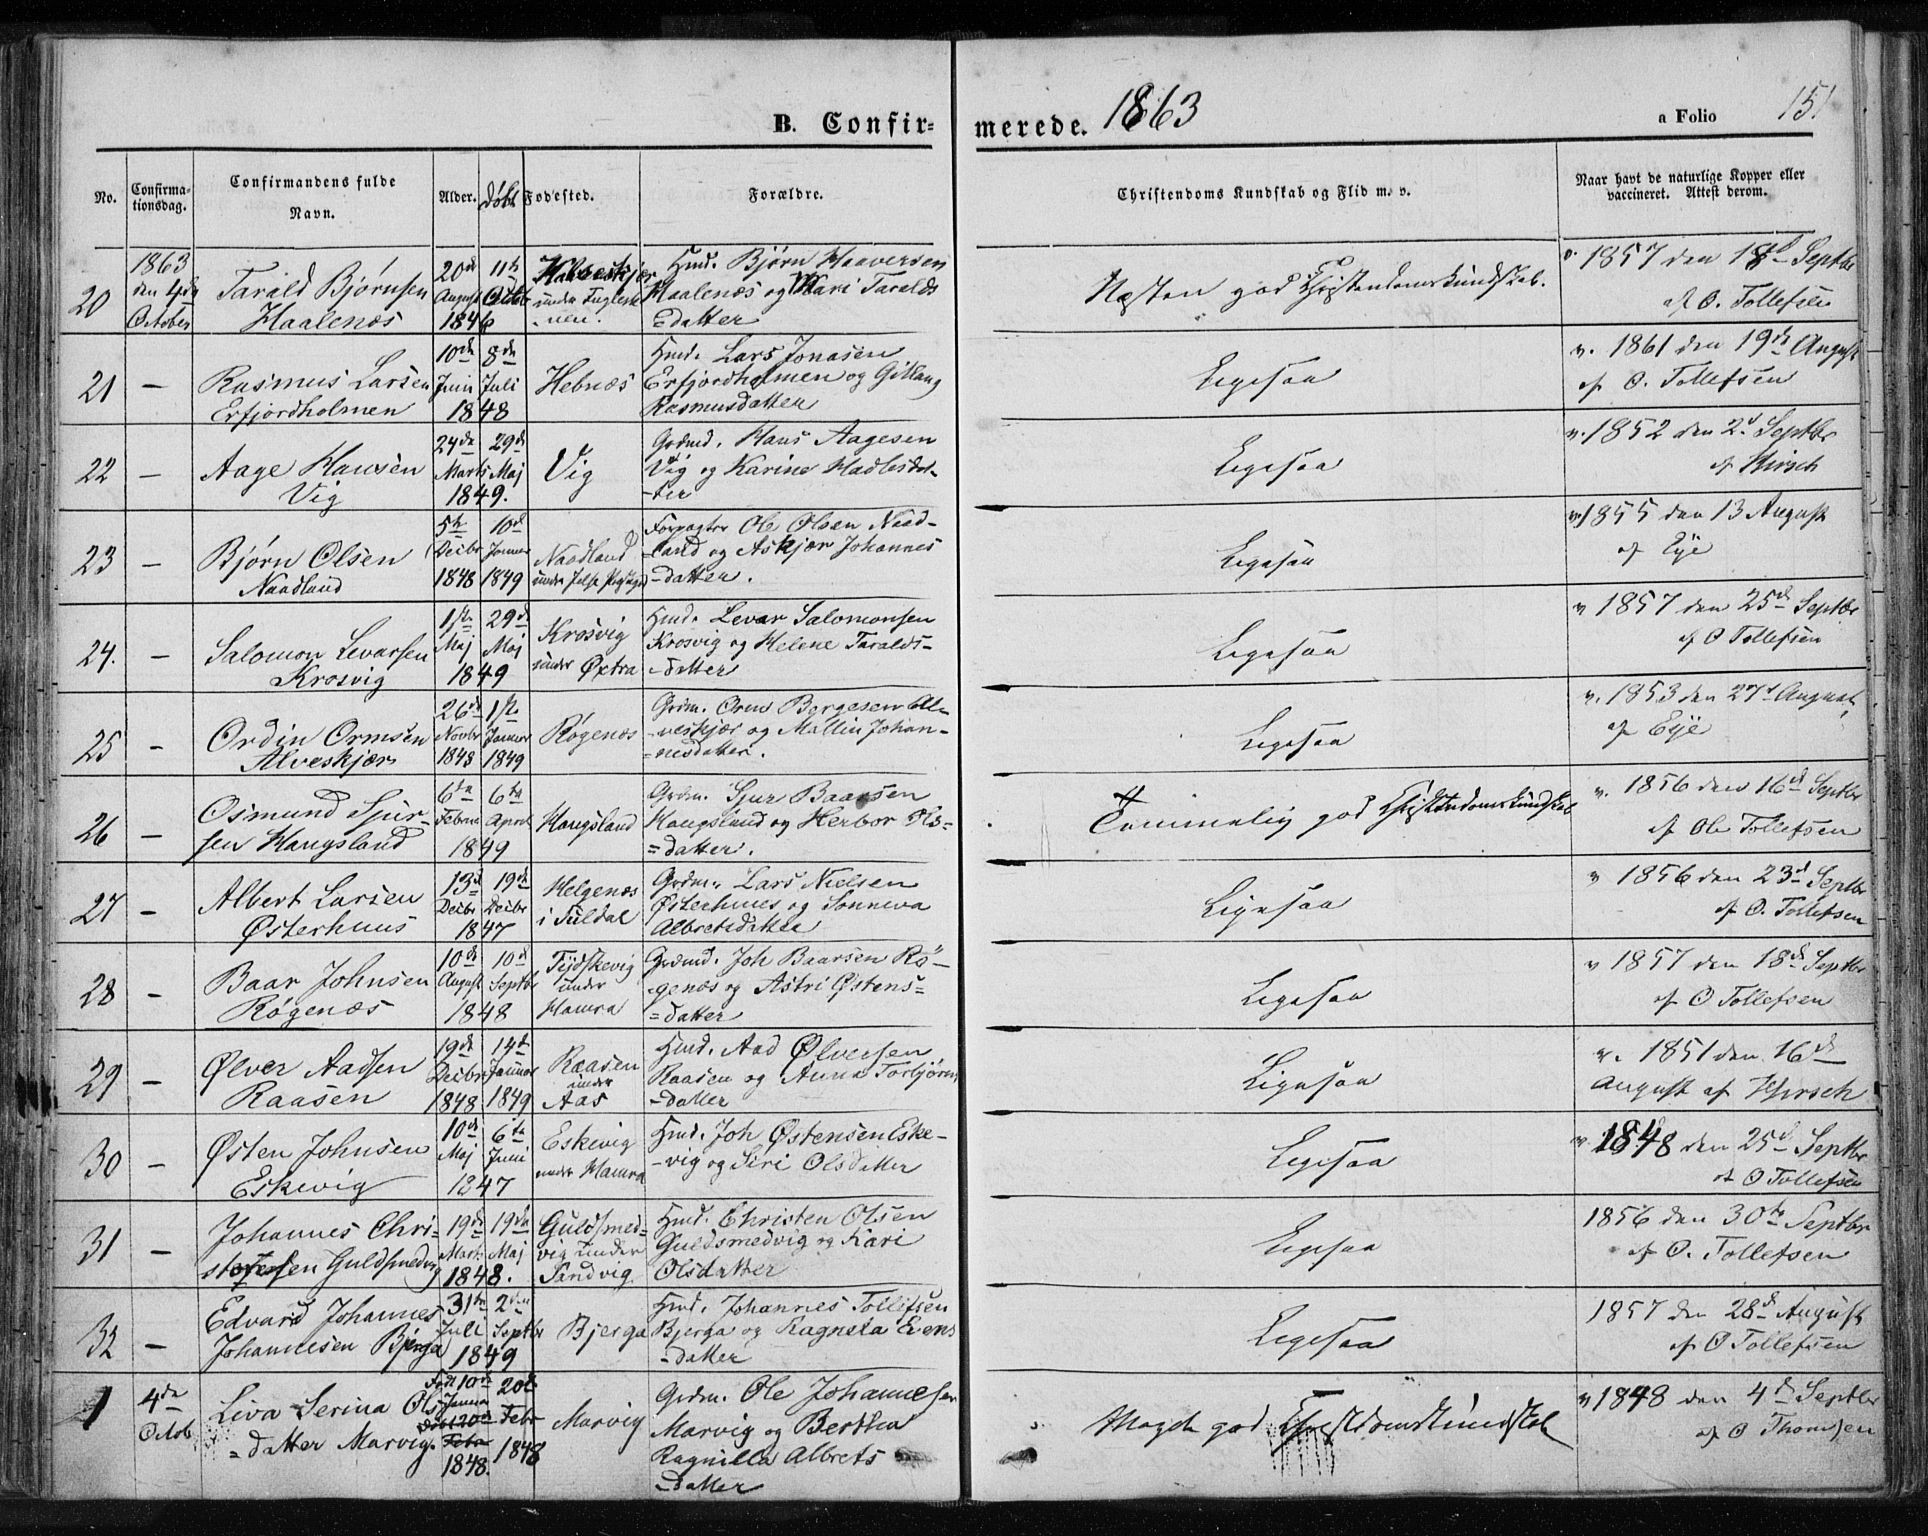 B. Confir=
merede. 1863
a Folio 151
No. Confirma-tionsdag. Confirmandens fulde Navn. Alder. Døbt Fødested. Forældre. Christendoms Kundskab og Flid m. v. Naar havt de naturlige Kopper eller vaccineret. Attest derom.
20 1863 den 4de October
Tarald Bjørnsen
Haalenæs
20de August 11te Octbr 1846
under
Hmd. Bjørn Haaversen
Haalenæs og Kari Taralds
datter
Næsten god Christendomskundskab.
v. 1857 den 18de Septbr
af O. Tollefsen
21 —
Rasmus Larsen
Erfjordholmen
10de Juni 8de Juli 1848
Hebnæs
Hmd. Lars Jonasen
Erfjordholmen og Gitlaug
Rasmusdatter
Ligesaa
v. 1861 den 19de August
af O. Tollefsen
22 —
Aage Hansen
Vig
24de Marts 29de Maj 1849.
Vig
Grdmd. Hans Aagesen
Vig og Karine Hadlesdat-
-ter
Ligesaa
v. 1852 den 2d Septbr
af Hirsch
23 —
Bjørn Olsen
Naadland
5te Decbr 1848 10de Januar 1849
Naadland
under Jelse
Forpagter Ole Olsen Naad-
-land og Askjær Johannes
-datter.
Ligesaa
v. 1855 den 13 August
af Eye
24. —
Salomon Levarsen
Krosvig
1ste Maj 29de Maj 1849
Krosvig
under Øxtra
Hmd. Levar Salomonsen
Krosvig og Helene Taralds-
-datter
Ligesaa
v 1857 den 25de Septbr
af O Tollefsen
25 —
Ordin Ormsen
Alveskjær
26de Novbr 1848 1ste Januar 1849
Røgenæs
Grdm. Orm Bergesen Al-
-veskjær og Mallin Johan-
-nesdatter.
Ligesaa
v. 1853 den 27d August
af Eye
26 —
Osmund Sjur-
sen Haugsland
6te Februar 6te April 1849
Haugsland
Grdm. Sjur Baarsen
Haugsland og Herbor Ols=
=datter.
Temmelig god Christendomskundskab
v. 1856 den 16de Septbr
af Ole Tollefsen
27 —
Albert Larsen
Østerhuus
13de Decbr 19de Decbr 1847
Helgenæs
i Suldal
Grdm. Lars Nielsen
Østerhuus og Sønneva
Albretsdatter
Ligesaa
v 1856 den 23de Septbr
af O. Tollefsen
28 —
Baar Johnsen
Røgenæs
10de August 10de Septbr 1848
Tydskevig
under
Hamra
Grdmd. Joh Baarsen Rø-
genæs og Astri Østens=
=datter
Ligesaa
v 1857 den 18de Septbr
af O Tollefsen
29 —
Ølver Aadsen
Raasen
19de Decbr 1848 14de Januar 1849
Raasen
under
Aas
Hmd. Aad Ølversen
Raasen og Anna Torbjørns
-datter
Ligesaa
v. 1851 den 16de
August af Hirsch
30 —
Østen Johnsen
Eskevig
10de Maj 6te Juni 1847
Eskevig
under Hamra
Hmd. Joh Østensen Eske-
-vig og Siri Olsdatter
Ligesaa
v 1848 den 25de Septbr
af O Tollefsen
31 —
Johannes Chri-
stensen Guldsmedvig
19de Marts 19de Maj 1848.
Guldsmed-
vig under
Sandvig
Hmd. Christen Olsen
Guldsmedvig og Kari
Olsdatter
Ligesaa
1856 den 30te Septbr
af O. Tollefsen
32 —
Edvard Johannes
Johannesen Bjerga
31te Juli 2den Septbr 1849
Bjerga
Hmd. Johannes Tollefsen
Bjerga og Ragnela Evens
-datter
Ligesaa
1857 den 28de August
af O Tollefsen
1 4de Octob
Liva Serina Ols
=datter Marvig.
Født 10de Janua Døbt 20de Febr 1848. 20de Febr 1848
Marvig
Grdm. Ole Johannesen
Marvig og Berthea
Ragnilla Albrets
-datter
Meget god Christendomskundskab
v 1848 den 4de Septbr
af O Thomsen